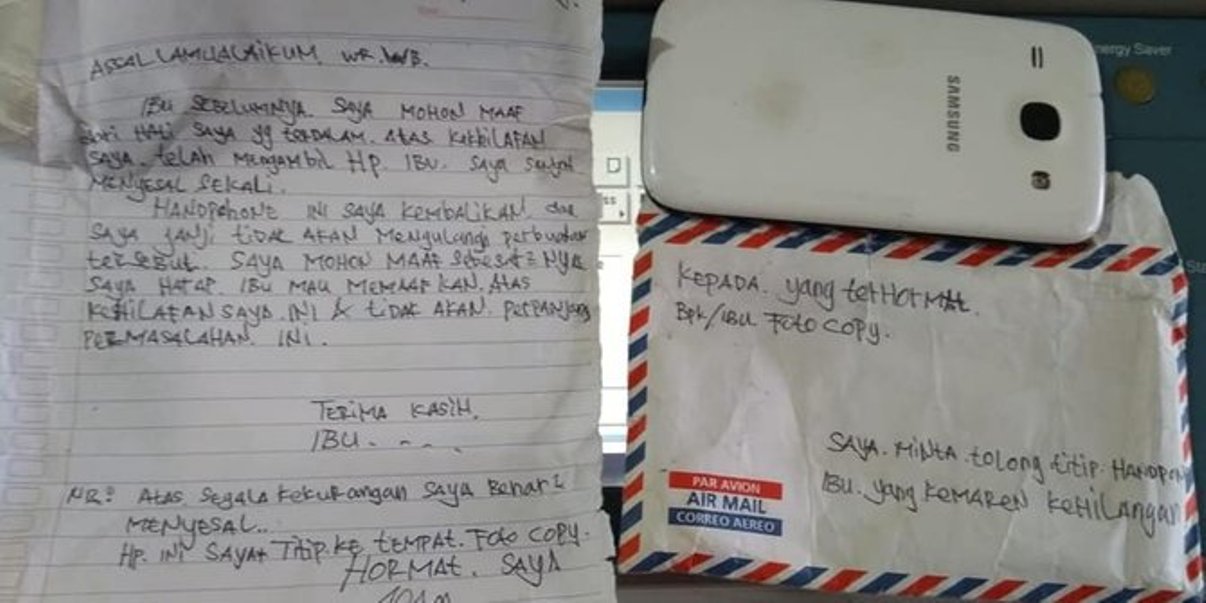 ASSALLAMUALAIKUM. WR. WB.
IBU SEBELUMNYA. SAYA MOHON MAAF
dari HATI SAYA yg terdalam. Atas KekHILAFAN
SAYA. telah MengAMbil Hp. IBU. SAya sangat
MENYESAL SEKALI.
HANDphONE INI SAYA KembALIKAN dan
SAYA JANJI tiDAK AKAN MengulANgi perbuatan
tersebut. SAYA MOHON MAAF sebesar2NYA
SAYA HARAP IBU MAU MEMAAFKAN. Atas
KeKHILAFAN SAYA. INI & tiDAK AKAN. perpanjang
PERMASALAHAN. INI.
TERIMA KASIH.
IBU. - - .
NB: Atas. Segala KeKurangan SAYA BeNAR2
MENYESAL..
Hp. INI SAYA TITIP. KE TEMPAT. FOTO COPY.
HORMAT. SAYA
SAMSUNG
Energy Saver
KEPADA. yang terHORMAt.
Bpk/IBU Foto COPY.
SAYA. MINTA. tolong titip. HANDPON
IBU. yang KEMAREN KeHilangan
PAR AVION
AIR MAIL
CORREO AEREO